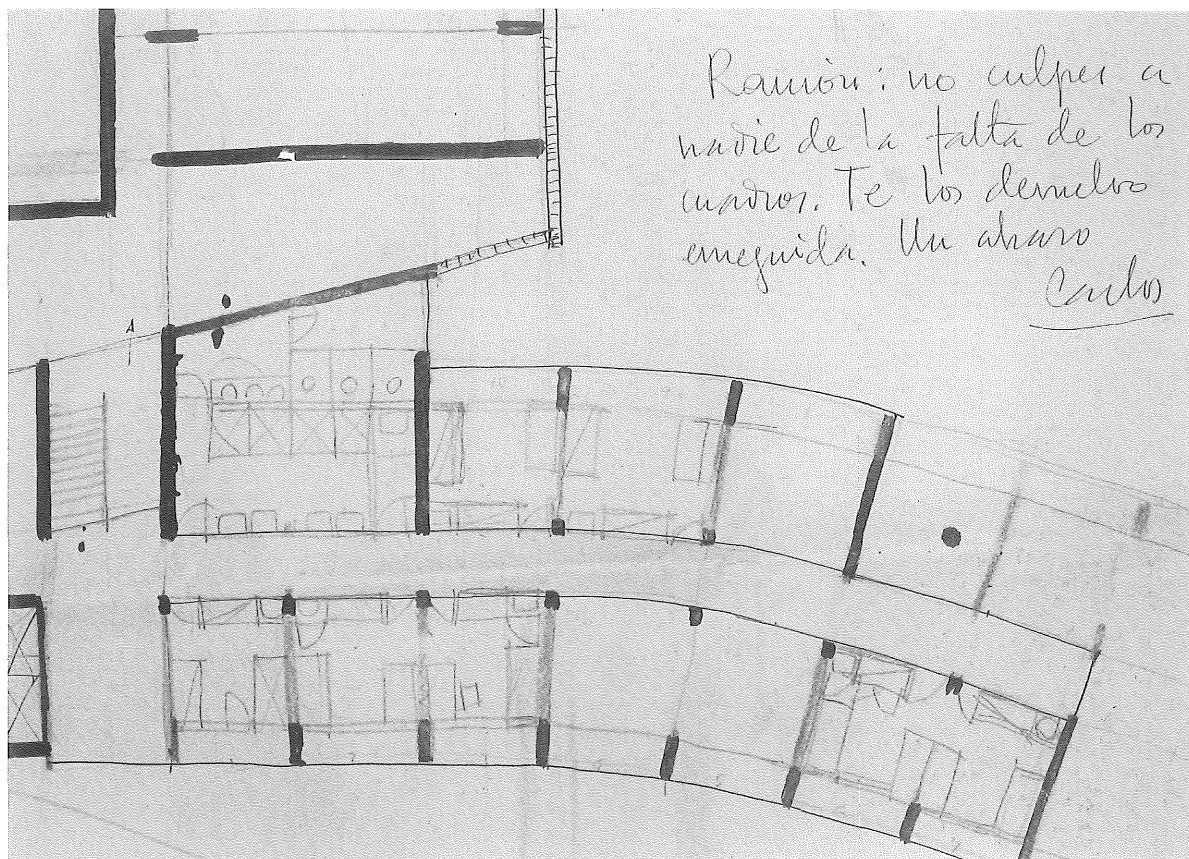 Ramón: no culpes a
nadie de la falta de los
cuadros. Te los devuelvo
enseguida. Un abrazo
Carlos
A